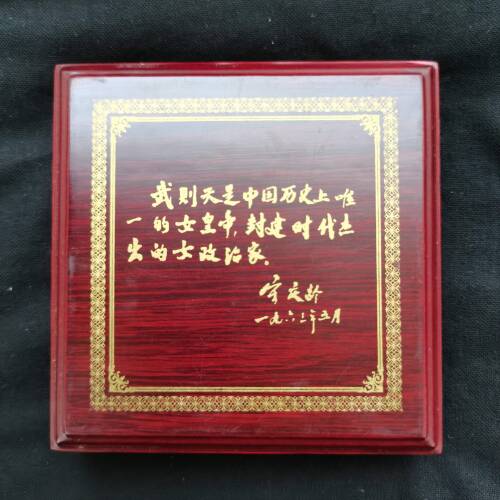 武则天是中国历史上唯
一的女皇帝,封建时代杰
出的女政治家。
宋庆龄
一九六三年五月